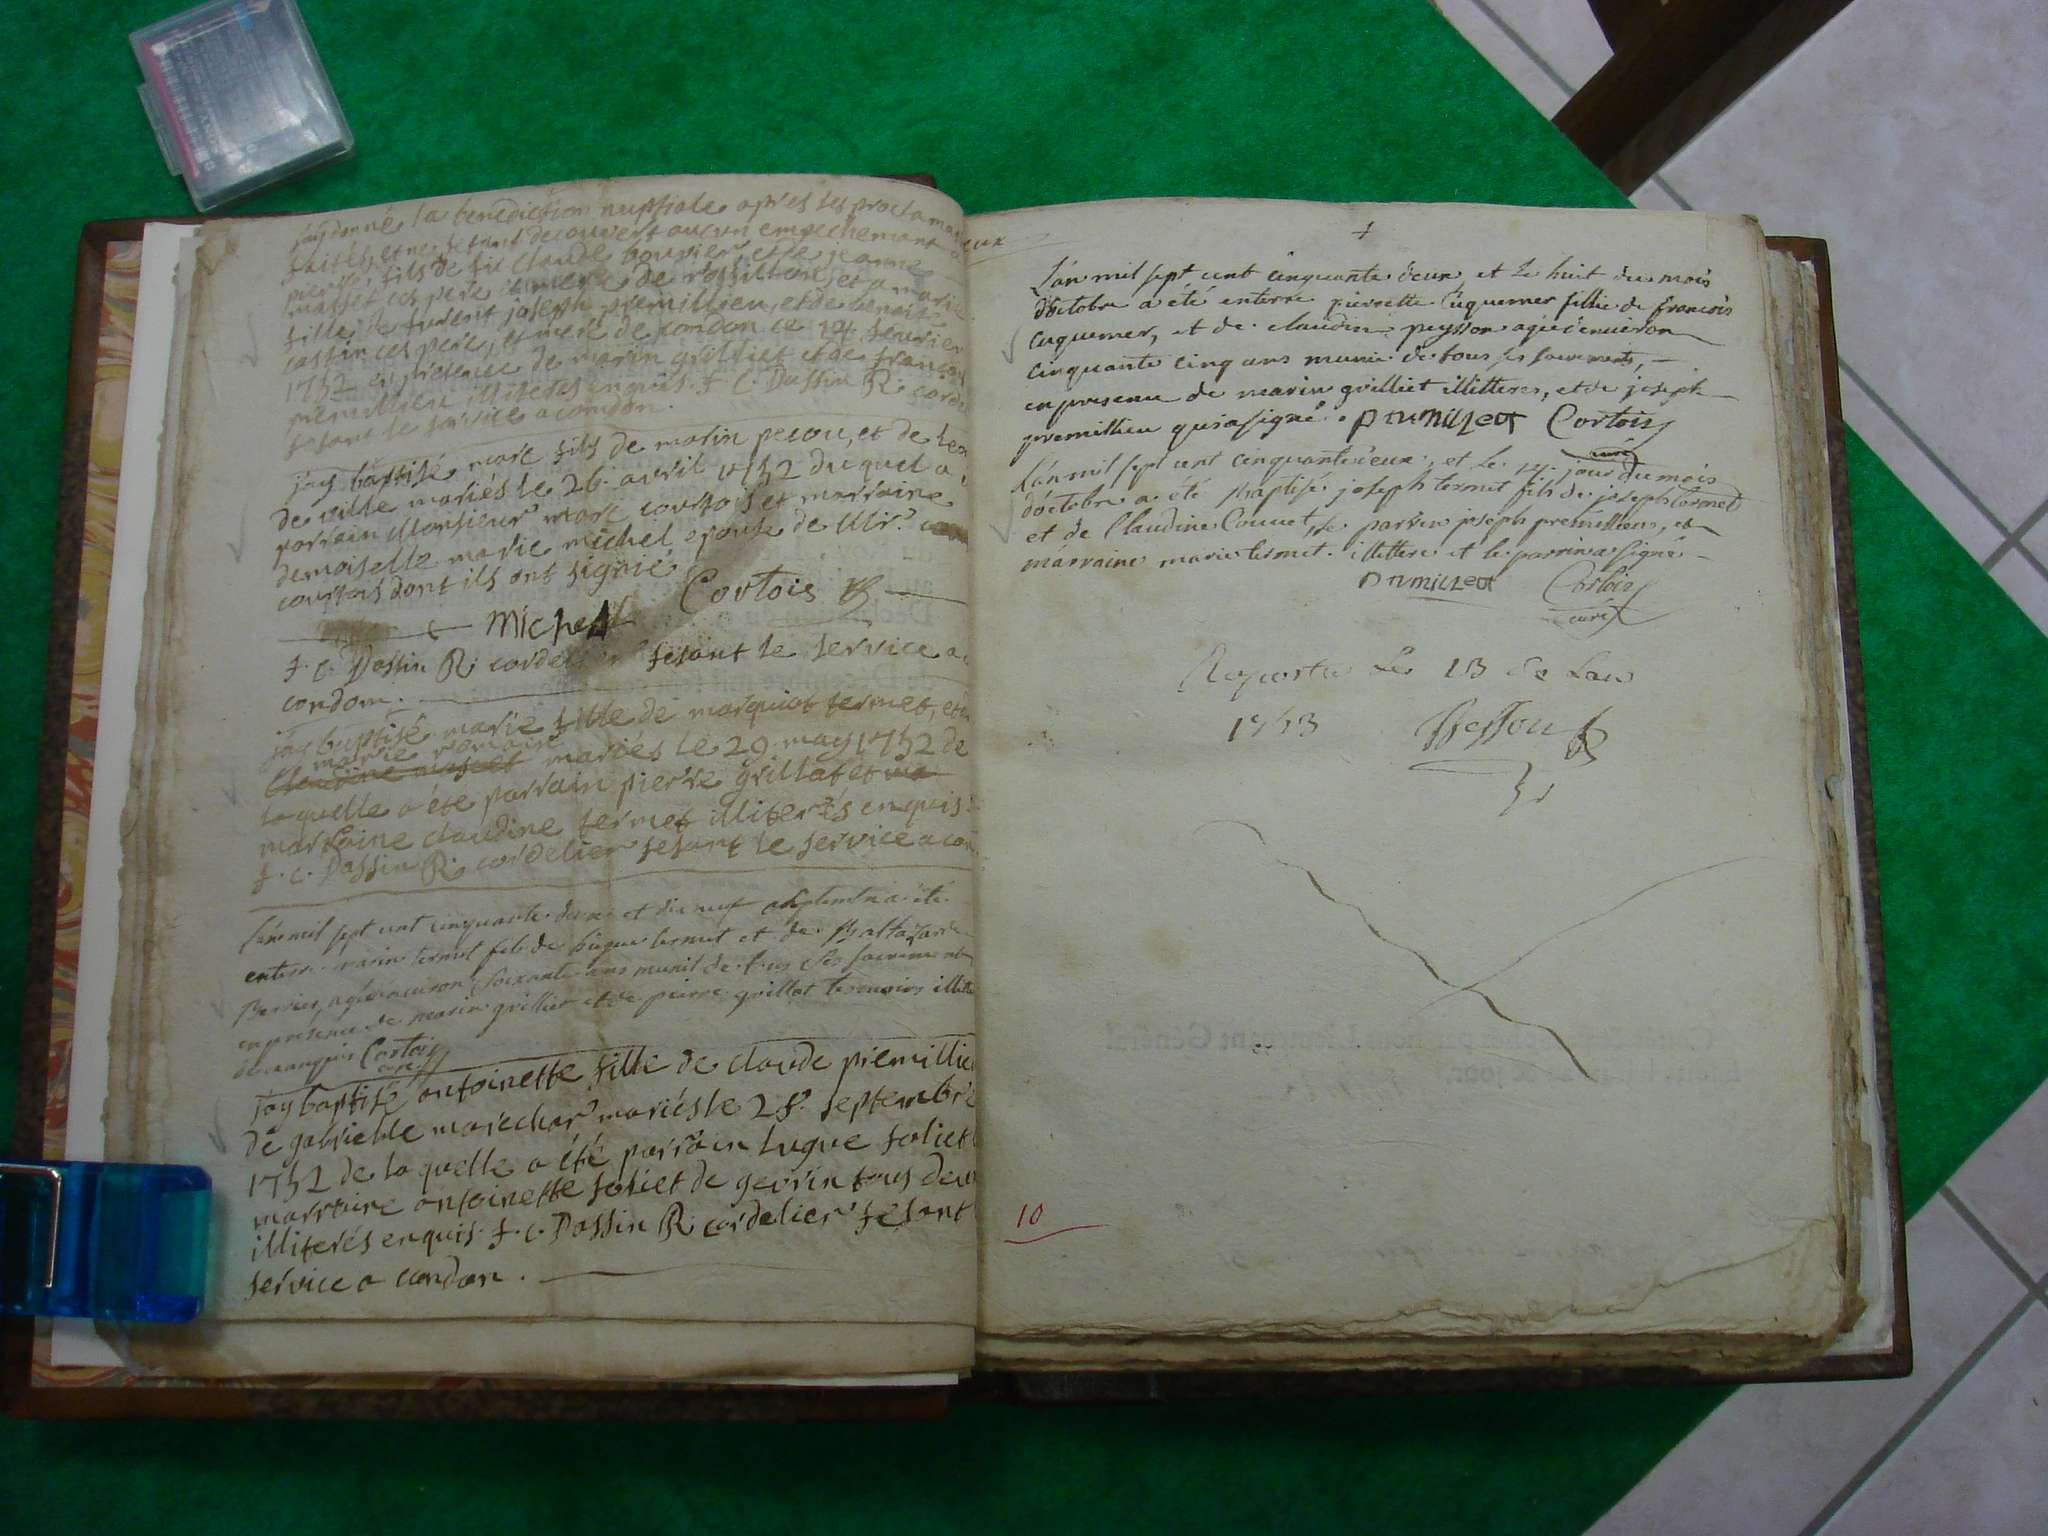 jay donné la benediction nuptiale apres les proclama
faites, et ne setant decouvert aucun empechement a
pierre, fils de fu claude bouvier, et de jeanne
masset ces pere et mere de rossillon, et a marie
fille de furent joseph premillieu, et de benoite
cassin ces pere, et mere de condon ce 14 feurier
1752 en presence de marin grilliet et de francois
premillieu illiterés enquis. f. C. Dassin R. corde
fesant le service a condon.
jay baptisé marc fils de marin pecou, et de
de ville mariés le 26. avril 1752 du quel a
parrain Monsieur marc courtois et marraine
demoiselle marie michel epouse de Mr.
courtois dont ils ont signié
Michel Cortois
f. C. Dassin R. cordelier fesant le service a
condom.
jay baptisé marie fille de marquiot termet, et
marie
Claudine masset mariés le 29 may 1752 de
laquelle a été parrain pierre grillat et ma
marraine claudine termet illiterés enquis
f. C. Dassin R. cordelier fesant le service a con
L'an mil sept cent cinquante deux et dix neuf septembre a été
enterré marin termet fils de hugue termet et de Baltazarde
Berrier, agé denviron soixante ans munit de tous ses sacrements
en presence de marin grilliet et de pierre grillat temoins illite
de ce enquis Cortois
curé
jay baptisé antoinette fille de claude premillieu
de gabrielle marechar mariés le 28. septembre
1752 de la quelle a été parrain hugue foliet
marraine antoinette foliet de gevrin tous deux
illiterés enquis. f. c. Dassin R. cordelier fesant
service a condon.
L'an mil sept cent cinquante deux, et le huit du mois
d'octobre a été enterré pierrette Cuquemer fillie de francois
cuquemer, et de claudine peysson agée denviron
cinquante cinq ans munie de tous ses sacrements,
en presence de marin grilliet illitteres, et de joseph
premillieu qui a signé. premilleu Cortois
curé
L'an mil sept cent cinquante deux, et le jour du mois
d'octobre a été Baptisé joseph termet fils de joseph termet
et de Claudine Couuet, le parrin joseph premillieu, et
marraine marie termet. illettere et le parrin a signé
premilleu Cortois
curé
Raporté Le 13 de Lan
1753 Bessou
10